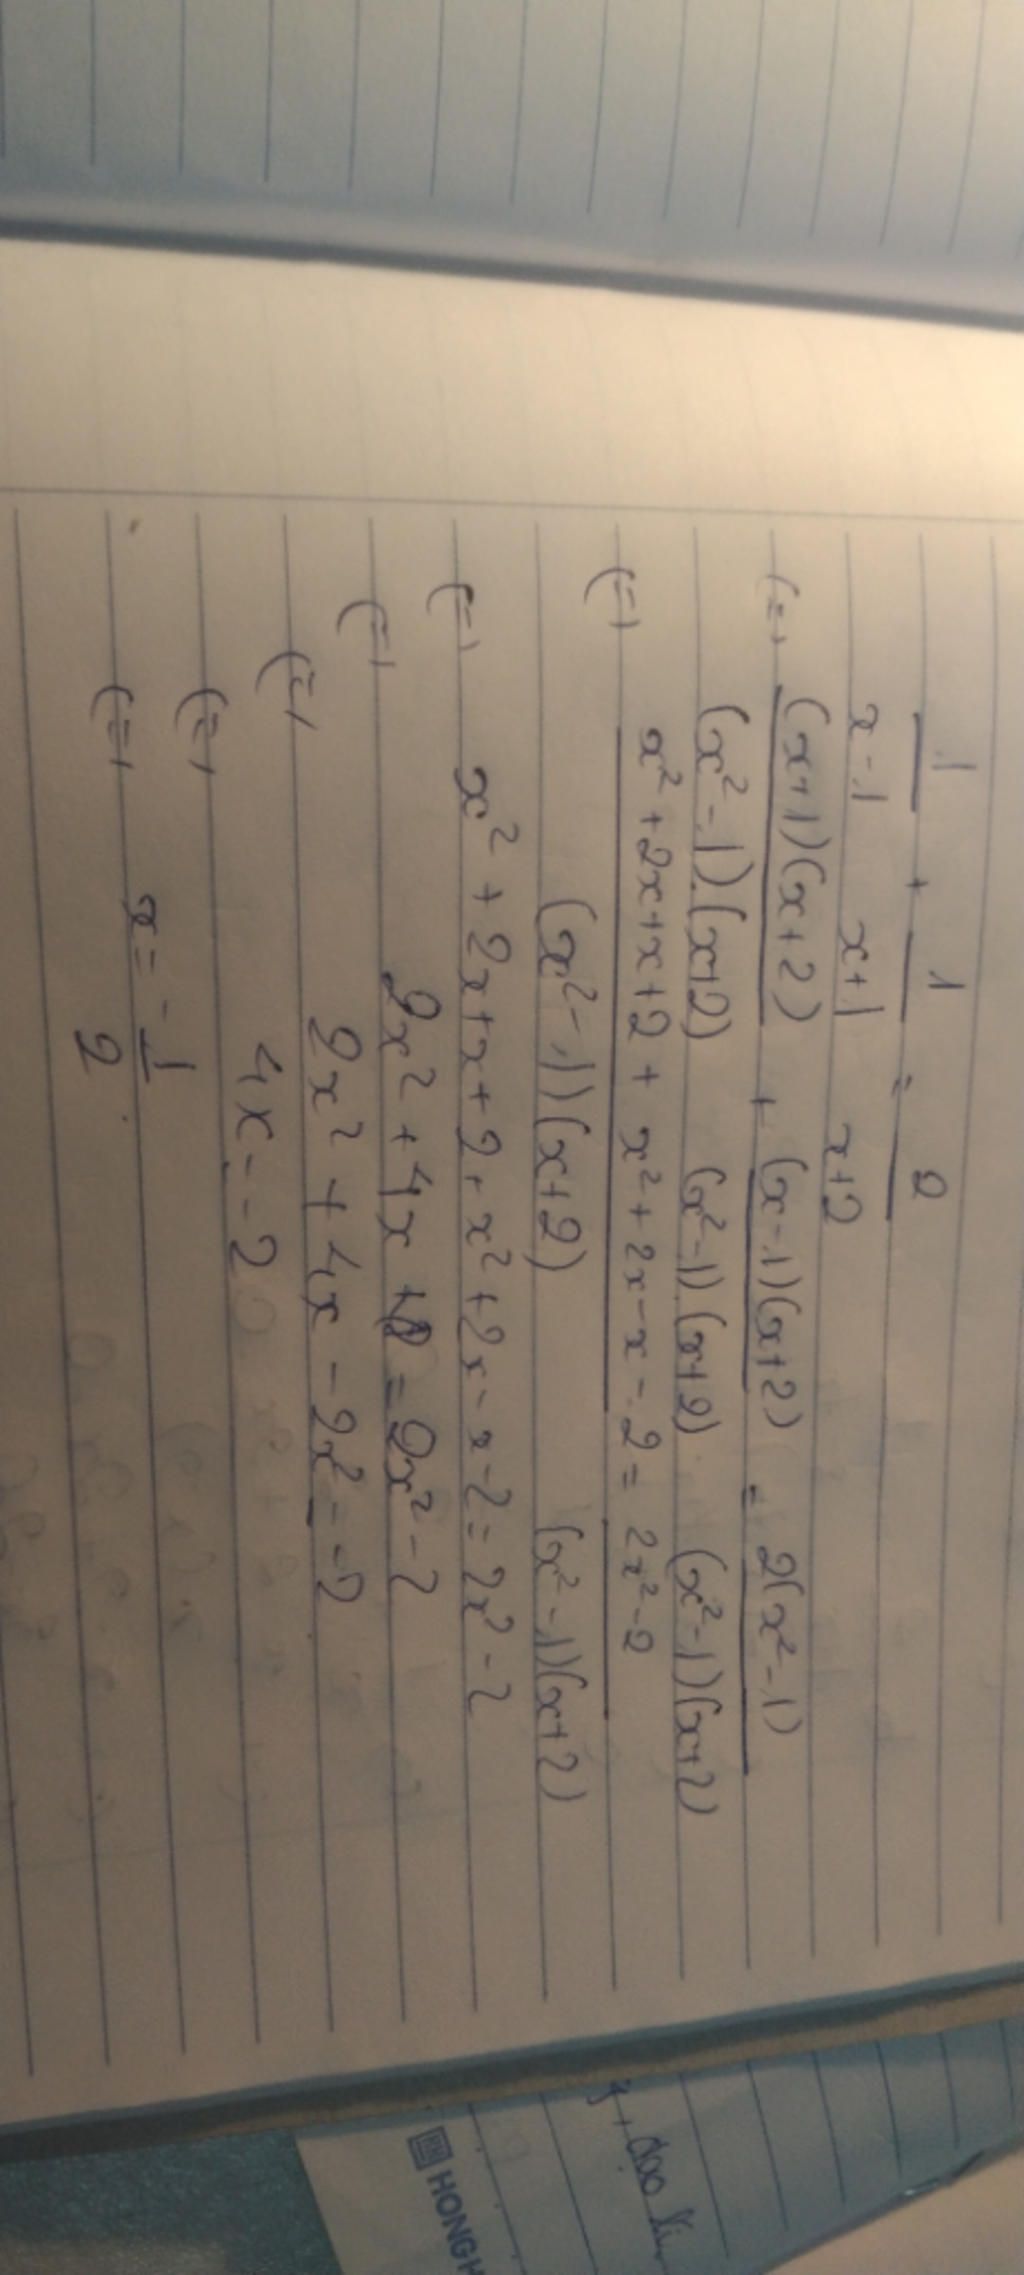 1/(x-1) + 1/(x+1) = 2/(x+2)
(=) (x+1)(x+2)/((x²-1).(x+2)) + (x-1)(x+2)/((x²-1).(x+2)) = 2(x²-1)/((x²-1)(x+2))
(=) (x²+2x+x+2+x²+2x-x-2)/((x²-1)(x+2)) = (2x²-2)/((x²-1)(x+2))
(=) x²+2x+x+2+x²+2x-x-2=2x²-2
(=) 2x²+4x+0=2x²-2
(=) 2x²+4x-2x²=-2
(=) 4x=-2
(=) x=-1/2
+ đạo
HONGH